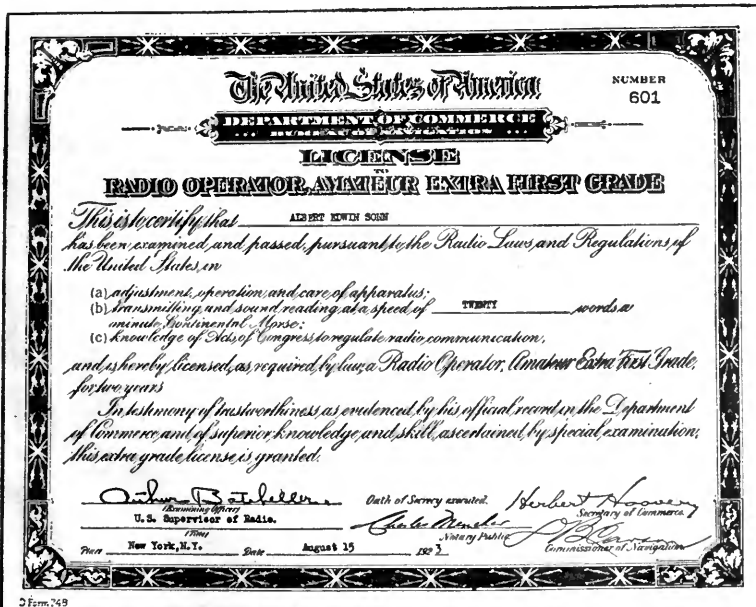 The United States of America
NUMBER
601
DEPARTMENT OF COMMERCE
BUREAU OF NAVIGATION
LICENSE
TO
RADIO OPERATOR, AMATEUR EXTRA FIRST GRADE
This is to certify that ALBERT EDWIN SONN
has been examined and passed, pursuant to the Radio Laws and Regulations of
the United States, in
(a) adjustment, operation, and care of apparatus;
(b) transmitting and sound reading at a speed of TWENTY words a
minute, Continental Morse;
(c) knowledge of Acts of Congress to regulate radio communication,
and is hereby licensed, as required by law, a Radio Operator, Amateur Extra First Grade,
for two years
In testimony of trustworthiness as evidenced by his official record in the Department
of Commerce and of superior knowledge and skill, ascertained by special examination,
this extra grade license is granted.
Arthur Batcheller
(Examining Officer)
U.S. Supervisor of Radio.
(Title)
Oath of Secrecy executed.
Herbert Hoover
Secretary of Commerce.
Charles
Notary Public
Commissioner of Navigation
Place New York, N.Y. Date August 15 1923
Form 748